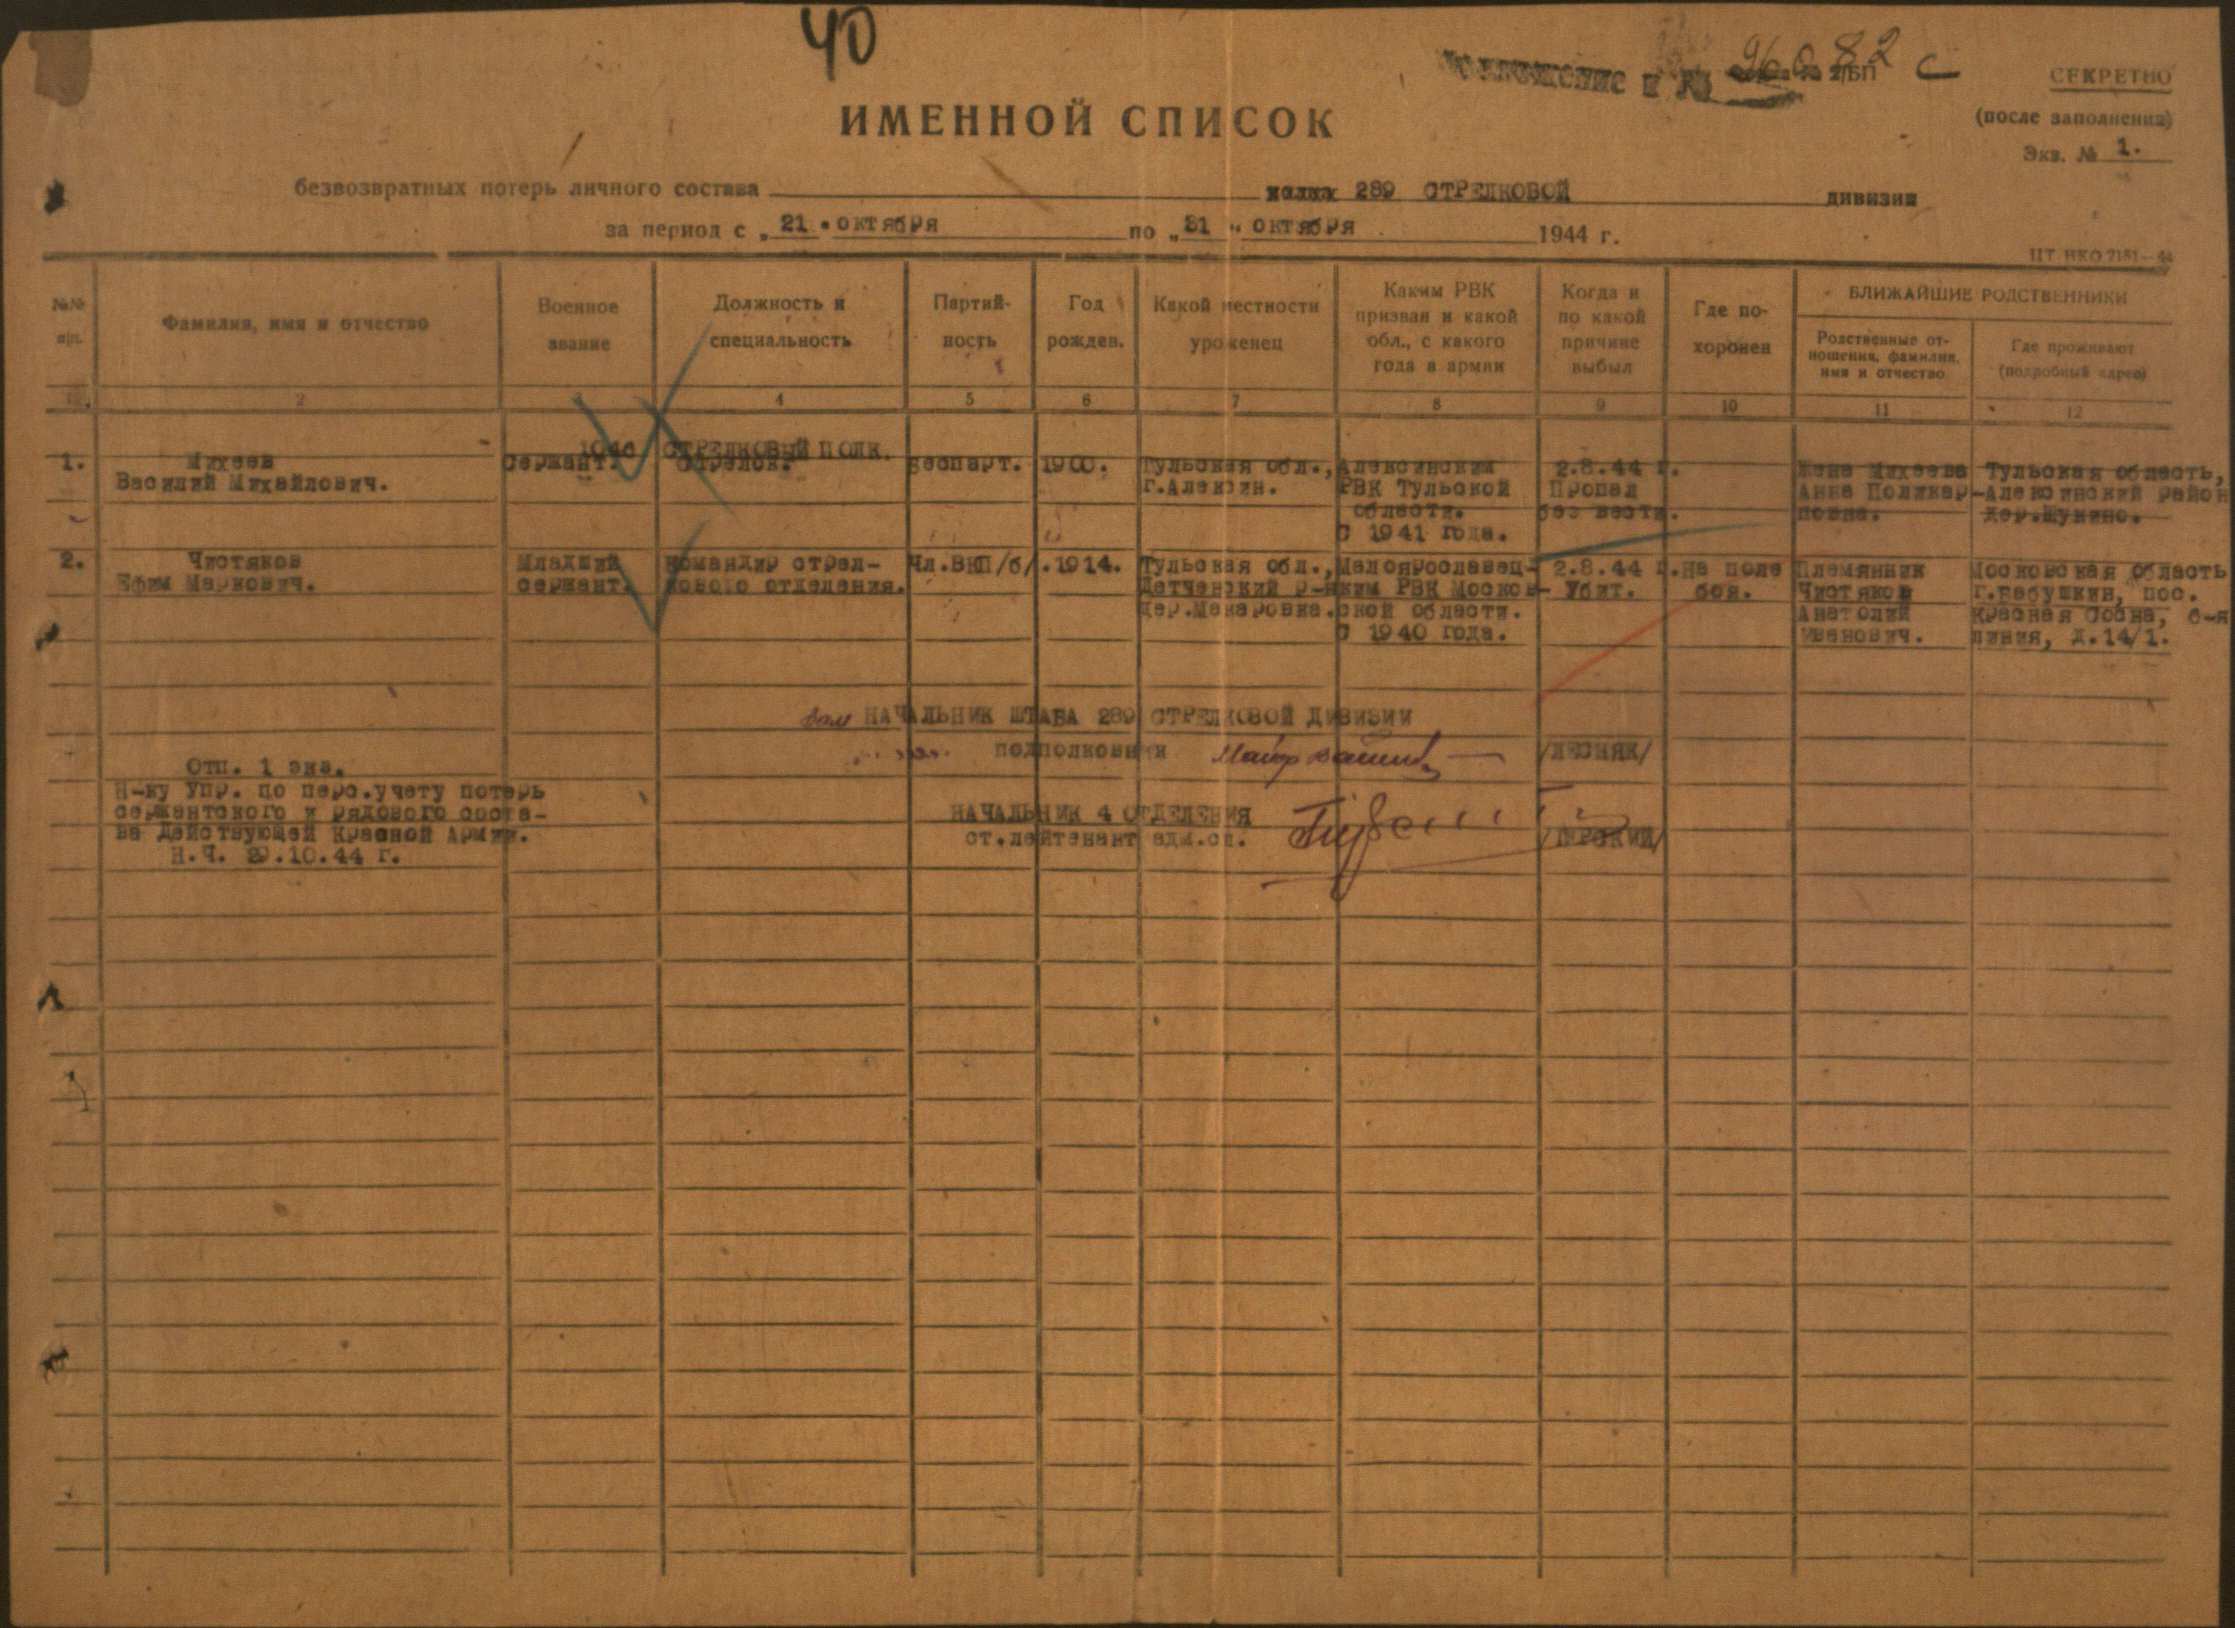 40
96082 с
СЕКРЕТНО
(после заполнения)
Экз. № 1.
ИМЕННОЙ СПИСОК
безвозвратных потерь личного состава полка 289 СТРЕЛКОВОЙ дивизии
за период с „21" октября по „31" октября 1944 г.
№№ п/п.
Фамилия, имя и отчество
Военное звание
Должность и специальность
Партий-
ность
Год рожден.
Какой местности уроженец
Каким РВК
призван и какой
обл., с какого
года в армии
Когда и
по какой
причине
выбыл
Где по-
хоронен
БЛИЖАЙШИЕ РОДСТВЕННИКИ
Родственные от-
ношения, фамилия,
имя и отчество
Где проживают
(подробный адрес)
2 4 5 6 7 8 9 10 11 12
СТРЕЛКОВЫЙ ПОЛК.
1. Михеев Сержант. Стрелок. Беспарт. 1900. Тульская обл., Алексинским 2.8.44 г. Жена Михеева Тульская область,
Василий Михайлович. г.Алексин. РВК Тульской Пропал Анна Поликар- Алексинский район
области. без вести. повна. дер.Щукино.
С 1941 года.
2. Чистяков Младший Командир стрел- Чл.ВКП/б/. 1914. Тульская обл., Малоярославец- 2.8.44 г. На поле Племянник Московская область
Ефим Маркович. сержант. кового отделения. Детчевский р-н ким РВК Москов- Убит. боя. Чистяков г.Бабушкин, пос.
дер.Макаровка. ской области. Анатолий Красная Сосна, 6-я
С 1940 года. Иванович. линия, д.14/1.
зам НАЧАЛЬНИК ШТАБА 289 СТРЕЛКОВОЙ ДИВИЗИИ
подполковник Майор /ЛЕСНЯК/
Отп. 1 экз.
Н-ку Упр. по перс.учету потерь
сержантского и рядового соста-
ва Действующей Красной Армии.
Н.Ч. 29.10.44 г.
НАЧАЛЬНИК 4 ОТДЕЛЕНИЯ
ст.лейтенант адм.сл.